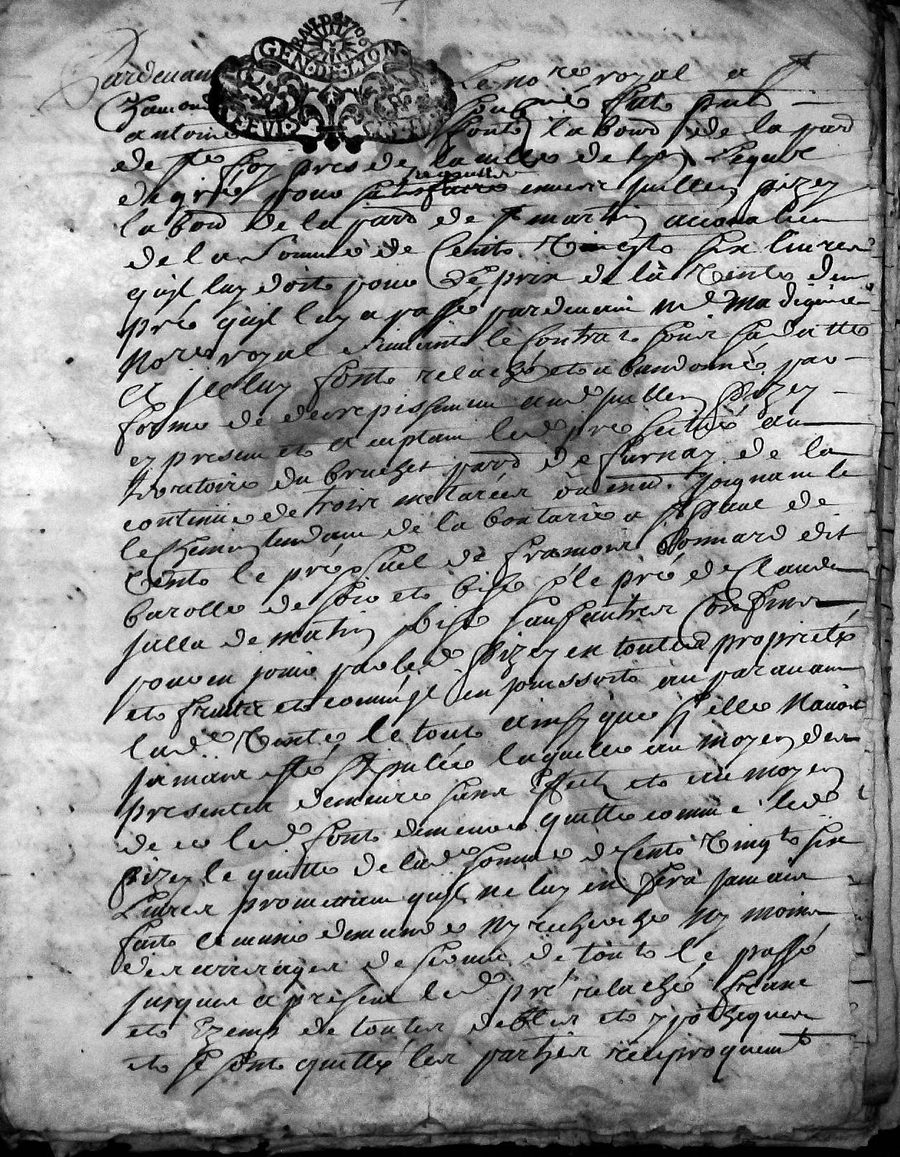 GEN DE LION
Pardevant le no.re royal a S.t
Chamond soubz.né fut pnt
antoine font labour de la parr
de S.te foy pres de la ville de lyon lequel
de gré pour envers guillen pizey
labour de la parr de S.t martin
de la somme de cent vingt six livres
quil luy doit pour le prix de la vente dun
pré quil luy a passé pardevant m.e
no.re royal le contrat pour sa datte
et jcelluy font relaché et abandonné par
forme de deguerpissement aud guillen pizey
cy present et acceptant led pré scitué au
territoire du bruchet parr de furnay de la
continue de trois metarées ou env. joignant le
le chemin tendant de la a S.t paul de
vent le pré de bonnard dit
barolle de soir et bise le pré de claude
julla de matin sauf autres confins
pour en jouir par led pizey en toutte proprieté
et fruits et comme jl en jouissoit au paravant
lad.e vente le tout ainsy que sy elle navoit
jamais esté stipulée laquelle au moyen des
presentes demeure sans effect et au moyen
de ce led font demeure quitte comme led
pizey le quitte de lad.e somme de cent vingt six
livres promettant quil ne luy en sera jamais
fait demande ny recherche ny moins
des arrerages de de tout le passé
jusques a present led pré relaché franc
et exempt de toutes debtes et ypotheques
et se sont quitté les parties reciproquem.t